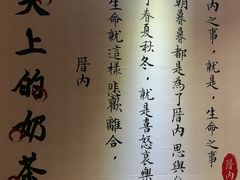 內之事，就是，生命之事，
朝暮暮都是為了厝內思與
了春夏秋冬，就是喜怒哀樂
生命就這樣悲歡離合，
厝內
尖上的奶茶
厝內